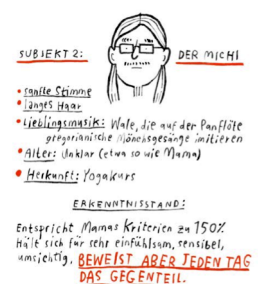 SUBJEKT 2: DER MICHI
• sanfte Stimme
• langes Haar
• Lieblingsmusik: Wale, die auf der Panflöte
gregorianische Mönchsgesänge imitieren
• Alter: Unklar (etwa so wie Mama)
• Herkunft: Yogakurs
ERKENNTNISSTAND:
Entspricht Mamas Kriterien zu 150%
Hält sich für sehr einfühlsam, sensibel,
umsichtig, BEWEIST ABER JEDEN TAG
DAS GEGENTEIL.